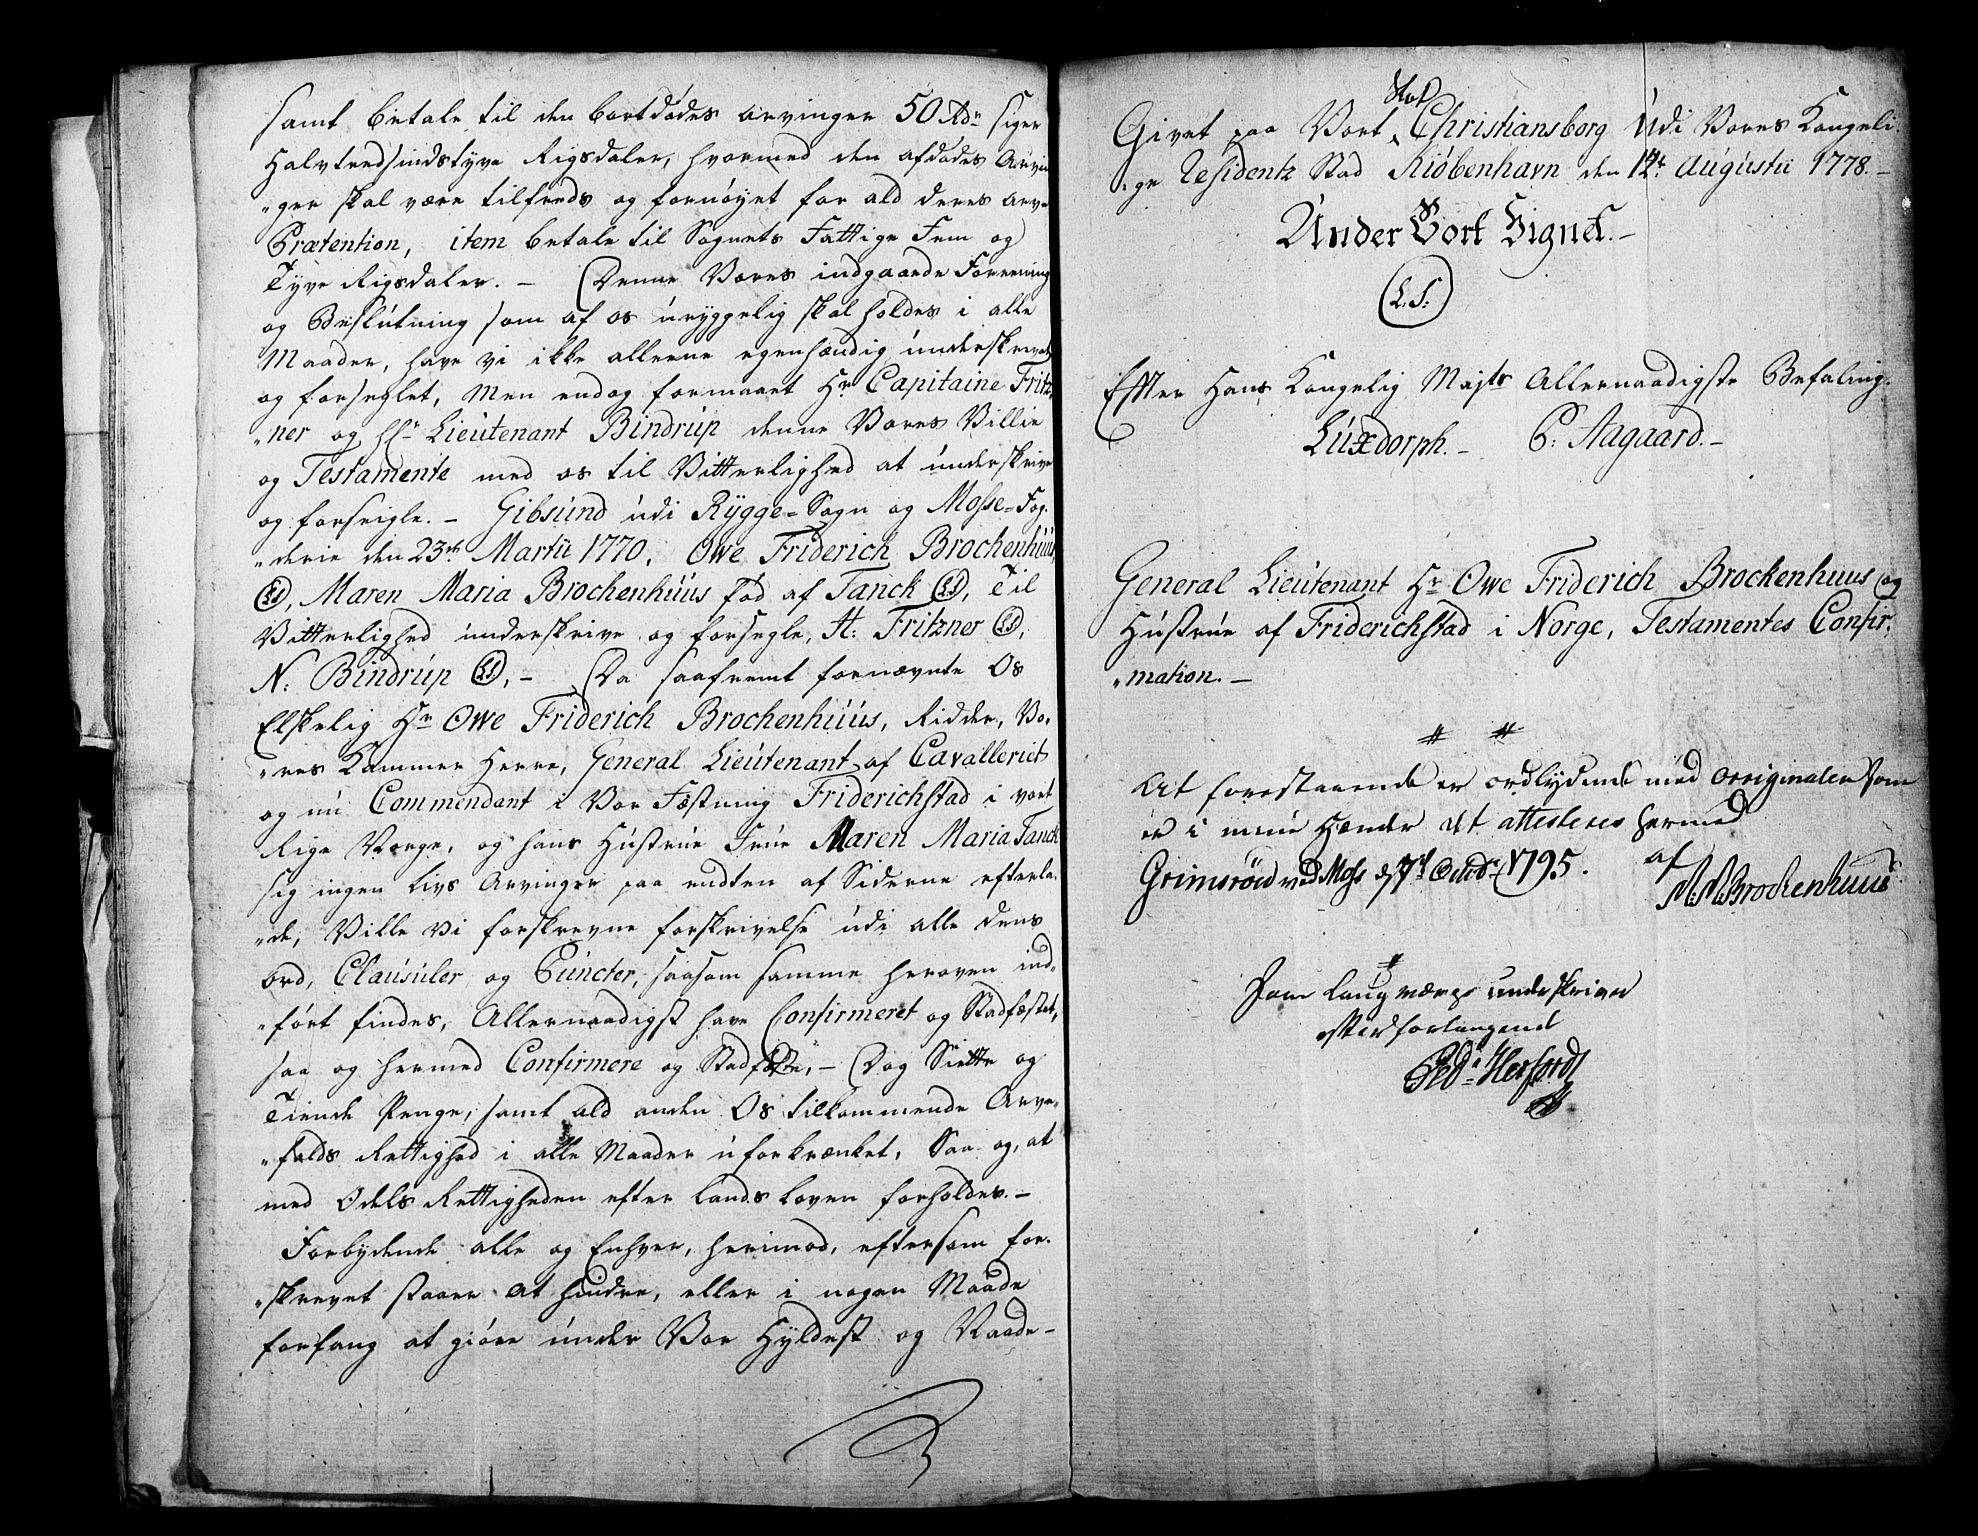 samt betale til den bortdødes arvinger 50 Rdr siger
Halvtredsindstyve Rigsdaler, hvormed den afdødes Arvin
„ger skal være tilfreds og fornøyet for ald deres arve
Prætention, item betale til Sognets Fattige Fem og
Tyve Rigsdaler. – Denne Vores indgaaede Foreening
og Beslutning som af os uryggelig skal holdes i alle
Maader, have vi ikke alleene egenhændig underskrevet
og forseglet, Men endog formaaet Hr Capitaine Fritz-
„ner og Hr Lieutenant Bindrup denne Vores Villie
og Testamente med os til Vitterlighed at underskrive
og forseigle. – Gibsund udi Rygge-Sogn og Mosse-Fog-
„derie den 23de Martii 1770. Owe Friderich Brochenhuus
(LS), Maren Maria Brochenhuus fød af Tanck (LS), Til
Vitterlighed underskrive og forsegle, H: Fritzner (LS),
N: Bindrup (LS), – Da saafremt fornævnte Os
Elskelig Hr Owe Friderich Brochenhuus, Ridder, Vo-
„res Kammer Herre, General Lieutenant af Cavalleriet
og nu Commendant i Vor Fæstning Friderichstad i vort
Rige Norge, og hans Hustrue Frue Maren Maria Tanck
sig ingen Livs Arvinger paa endten af Siderne efterla-
„de, Ville vi forskrevne forskrivelse udi alle dens
Ord, Clausuler og Puncter, saasom samme heroven ind-
„ført findes, Allernaadigst have Confirmeret og Stadfæstet,
saa og hermed Confirmere og Stadfæste, – Dog Siette og
Tiende Penge, samt ald anden Os tilkommende Arve-
„falds Rettighed i alle Maader uforkrænket, Saa og, at
med Odels Rettigheden efter Lands Loven forholdes. –
Forbydende alle og Enhver, herimod, eftersom for-
„skrevet staaer at hindre, eller i nogen Maade
forfang at giøre under Vor Hyldest og Naade –
Slot
Givet paa Vort Christiansborg Udi Vores Kongeli-
„ge Residentz Stad Kiøbenhavn den 14t Augustii 1778. –
Under Vort Signet. –
(L.S.)
Efter Hans Kongelig Majts Allernaadigste Befaling.
Luxdorph. – P: Aagaard. –
General Lieutenant Hr Owe Friderich Brockenhuus og
Hustrue af Friderichstad i Norge, Testamentes Confir-
„mation. –
# #
At forestaaende er ordlydende med originalen som
er i mine Hænder det attesteres hermed
Grimsröed ved Moss d 7de Octbr 1795. af
M: M: Brockenhuus
#
Som laugværge underskriver
efter forlangende